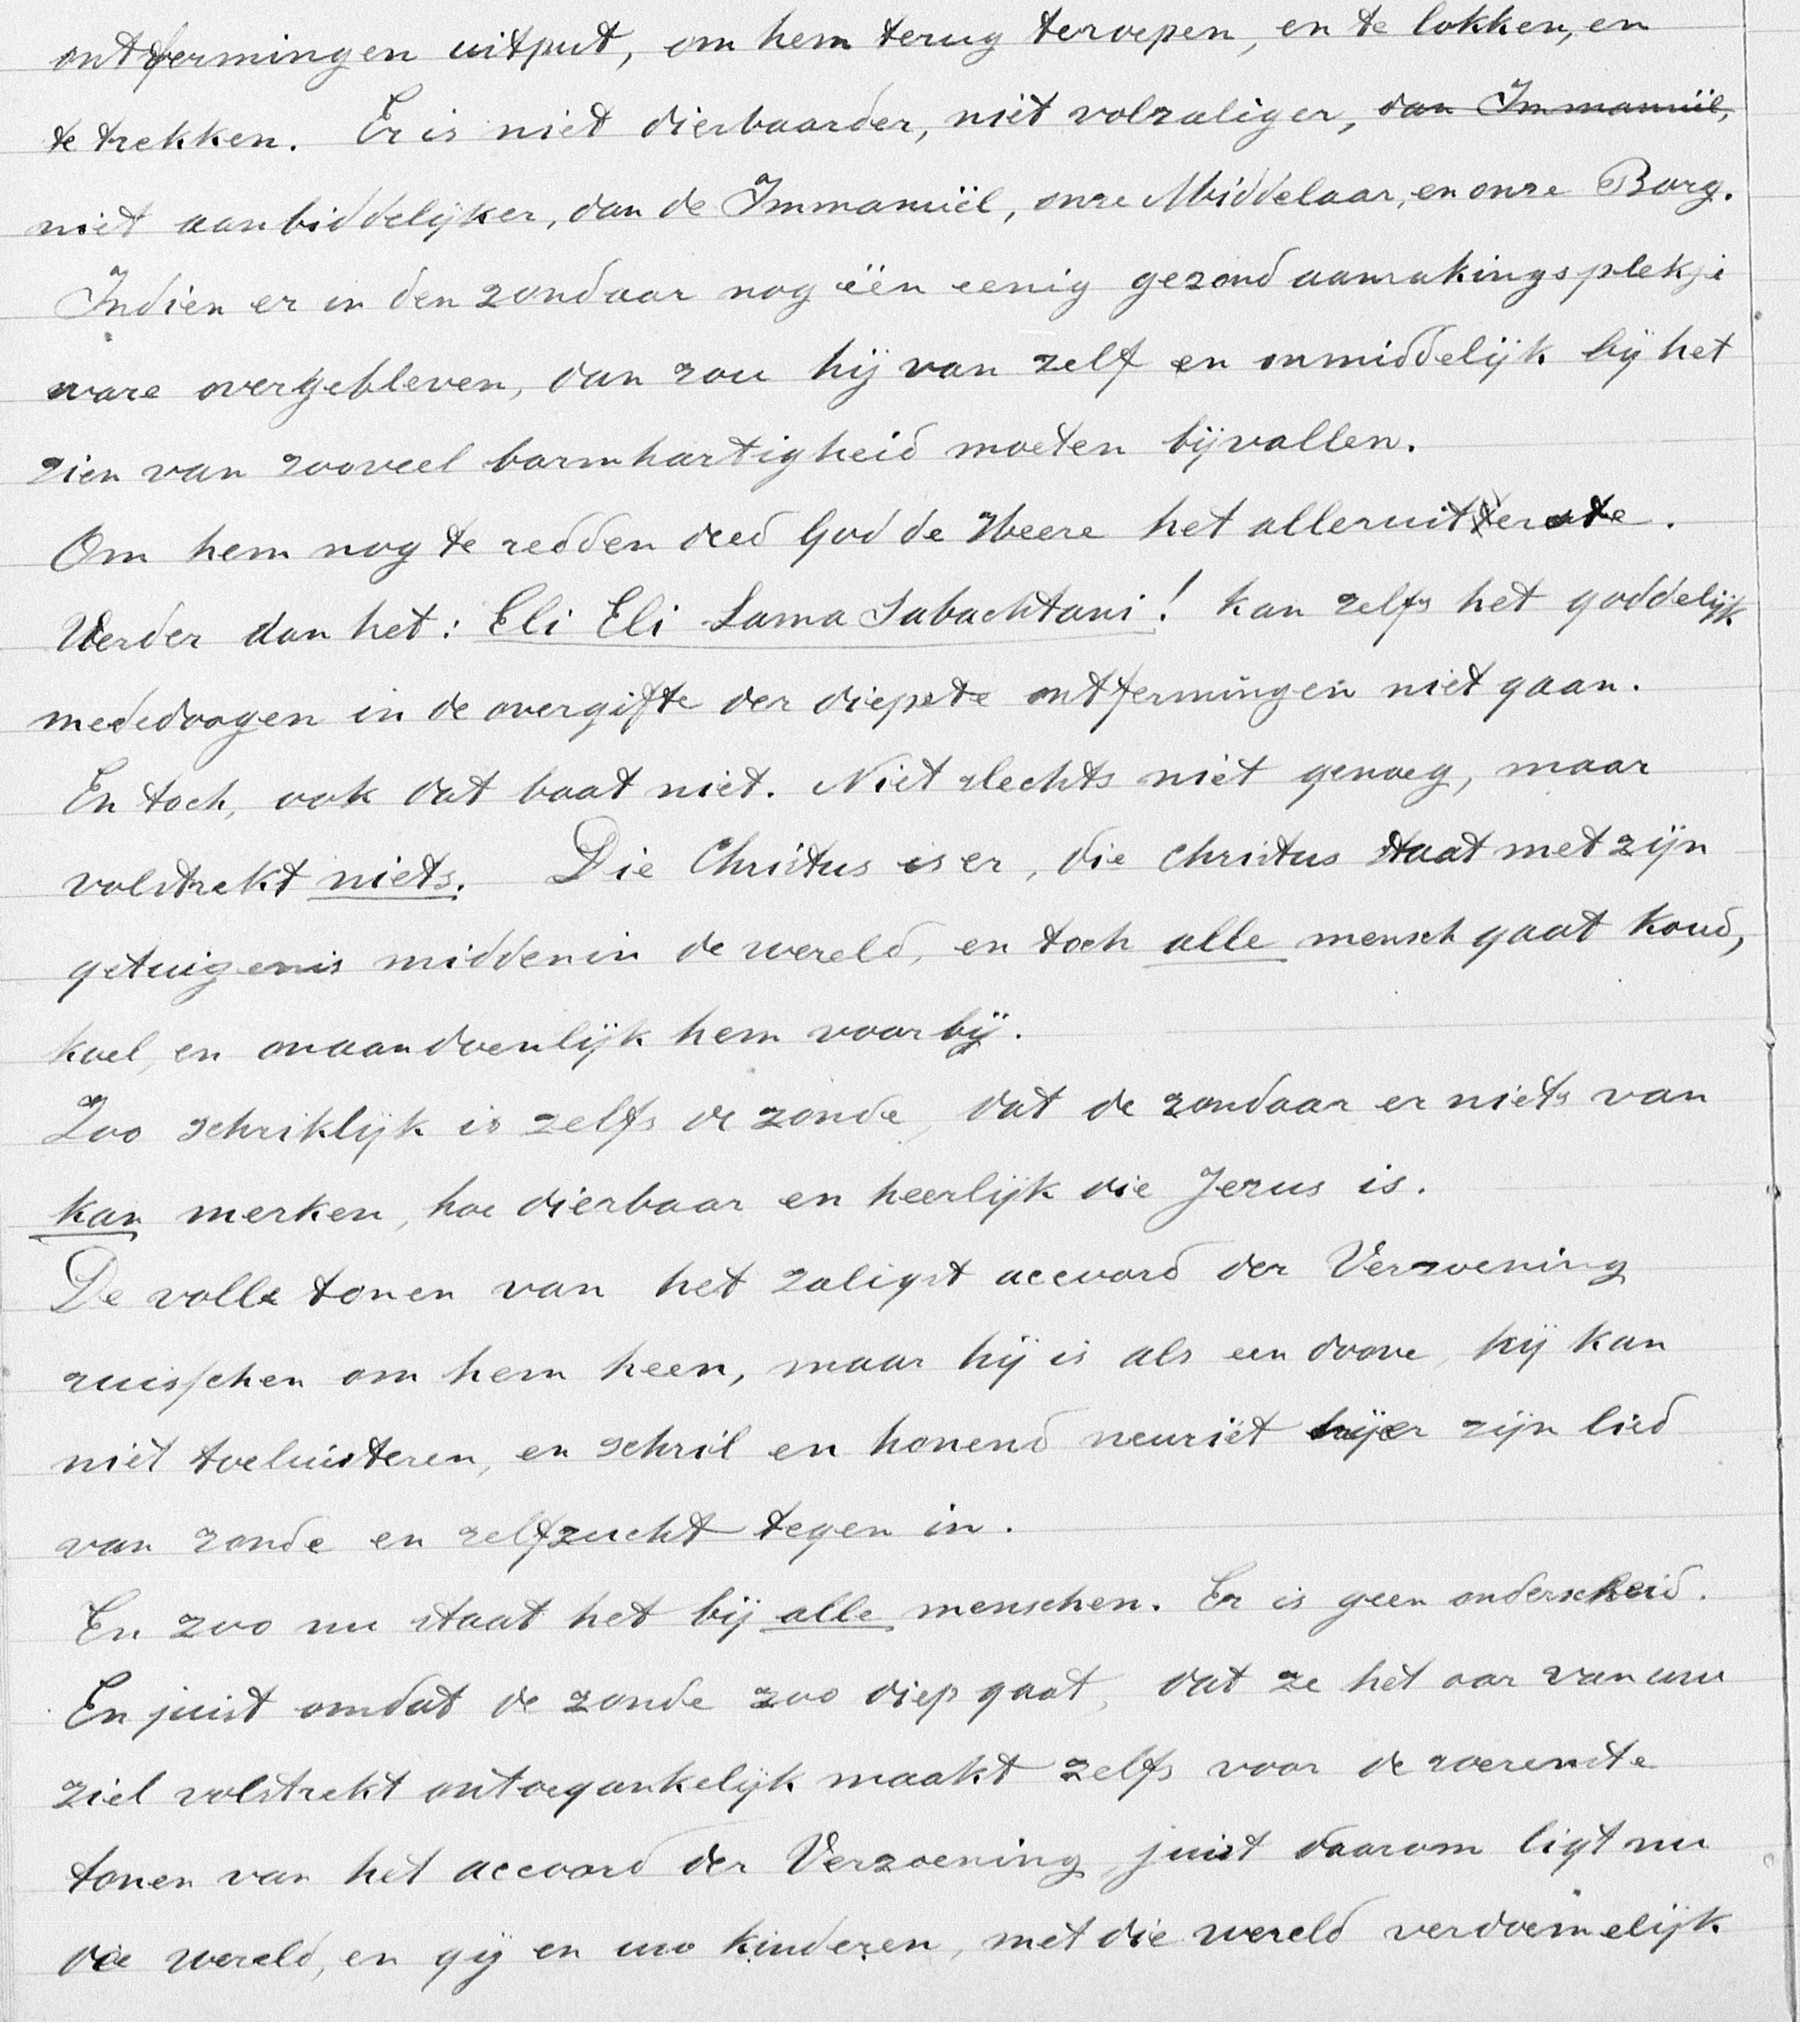 ontfermingen uitput, om hem terug teroepen, en te lokken, en
te trekken. Er is niet dierbaarder, niet volzaliger, dan Immanuël,
niet aanbiddelijker, dan de Immanuël, onze Middelaar, en onze Borg.
Indien er in den zondaar nog één eenig gezond aanrakingsplekje
ware overgebleven, dan zou hij van zelf en onmiddelijk bij het
zien van zooveel barmhartigheid moeten bijvallen.
Om hem nog te redden deed God de Heere het alleruiterste.
Verder dan het: Eli Eli Lama Sabachtani! kan zelfs het goddelijk
mededoogen in de overgifte der diepste ontfermingen niet gaan.
En toch, ook dat baat niet. Niet slechts niet genoeg, maar
volstrekt niets. Die Christus is er, die Christus staat met zijn
getuigenis midden in de wereld, en toch alle mensch gaat koud,
koel, en onaandoenlijk hem voorbij.
Zoo schriklijk is zelfs de zonde, dat de zondaar er niets van
kan merken, hoe dierbaar en heerlijk die Jezus is.
De volle tonen van het zaligst accoord der Verzoening
ruisschen om hem heen, maar hij is als een doove, hij kan
niet toeluisteren, en schril en honend neuriët hij er zijn lied
van zonde en zelfzucht tegen in.
En zoo nu staat het bij alle menschen. Er is geen onderscheid.
En juist omdat de zonde zoo diep gaat, dat ze het oor van uw
ziel volstrekt ontoegankelijk maakt zelfs voor de roerendste
tonen van het accoord der Verzoening, juist daarom ligt nu
die wereld, en gij en uw kinderen, met die wereld verdoemelijk